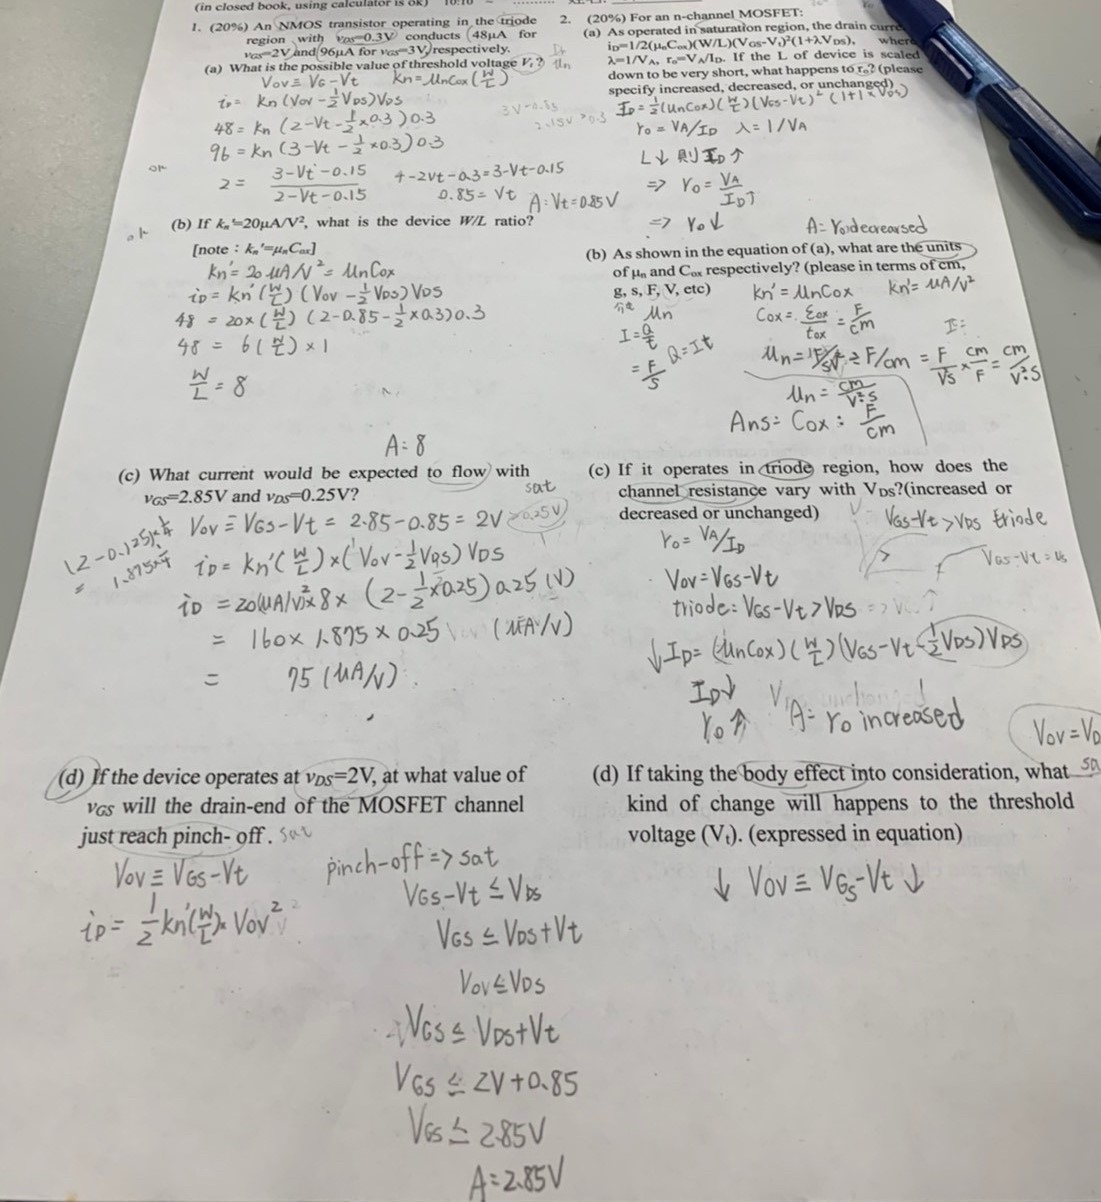 (in closed book, using calculator is ok) 10:10
1. (20%) An NMOS transistor operating in the triode
region with vDS=0.3V conducts 48μA for
vGS=2V and 96μA for vGS=3V, respectively.
(a) What is the possible value of threshold voltage Vt?
Vov ≡ VG-Vt kn=UnCox(W/L)
iD= kn(Vov-1/2VDS)VDS
48= kn(2-Vt-1/2×0.3)0.3
96= kn(3-Vt-1/2×0.3)0.3
2= 3-Vt-0.15/2-Vt-0.15 4-2Vt-0.3=3-Vt-0.15
0.85=Vt A:Vt=0.85V
(b) If kn'=20μA/V², what is the device W/L ratio?
[note : kn'=μnCox]
kn'= 20 UA/V²= UnCox
iD= kn'(W/L)(Vov-1/2VDS)VDS
48 = 20×(W/L)(2-0.85-1/2×0.3)0.3
48 = 6(W/L)×1
W/L = 8
A:8
(c) What current would be expected to flow with
vGS=2.85V and vDS=0.25V?
sat
Vov ≡ VGS-Vt = 2.85-0.85= 2V >0.25V
iD= kn'(W/L)×(Vov-1/2VDS)VDS
iD = 20(UA/V)²×8×(2-1/2×0.25)0.25(V)
= 160×1.875×0.25 (UA/V)
= 75(UA/V)
(d) If the device operates at vDS=2V, at what value of
vGS will the drain-end of the MOSFET channel
just reach pinch- off. sat
Vov ≡ VGS-Vt
iD= 1/2kn'(W/L)×Vov²
pinch-off => sat
VGS-Vt ≤ VDS
VGS ≤ VDS+Vt
Vov≤VDS
VGS ≤ VDS+Vt
VGS ≤ 2V+0.85
VGS ≤ 2.85V
A=2.85V
2. (20%) For an n-channel MOSFET:
(a) As operated in saturation region, the drain curre
iD=1/2(μnCox)(W/L)(VGS-Vt)²(1+λVDS), where
λ=1/VA, ro=VA/ID. If the L of device is scaled
down to be very short, what happens to ro? (please
specify increased, decreased, or unchanged)
ID=1/2(UnCox)(W/L)(VGS-Vt)²(1+1×VDS)
ro = VA/ID λ=1/VA
L↓ 則ID↑
=> ro=VA/ID↑
=> ro↓ A: ro:decrearsed
(b) As shown in the equation of (a), what are the units
of μn and Cox respectively? (please in terms of cm,
g, s, F, V, etc) kn'=UnCox kn'=UA/V²
Un Cox= εox/tox = F/cm
I=Q/t Q=It I=
= F/S
= F/VS × cm/F = cm/V²S
Un= cm/V²S
Ans: Cox: F/cm
(c) If it operates in triode region, how does the
channel resistance vary with VDS?(increased or
decreased or unchanged) VGS-Vt>VDS triode
ro=VA/ID
Vov=VGS-Vt
triode: VGS-Vt>VDS
↓ID=(UnCox)(W/L)(VGS-Vt-1/2VDS)VDS
ID↓
ro↑ A= ro increased
Vov=VD
(d) If taking the body effect into consideration, what
kind of change will happens to the threshold
voltage (Vt). (expressed in equation)
↓ Vov ≡ VGS-Vt ↓